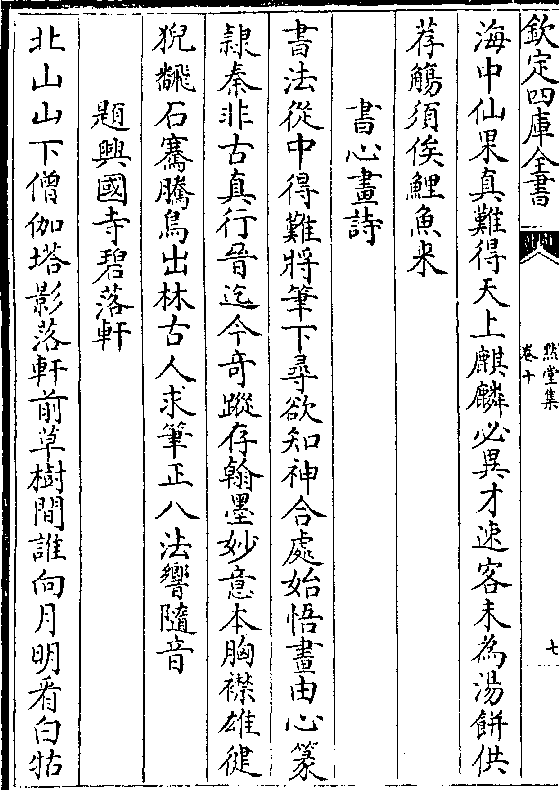 欽定四庫全書
黙堂集
卷十
七
海中仙果真難得天上麒麟必異才速客未為湯餅供
荐觴須俟鯉魚來
書心畫詩
書法從中得難將筆下尋欲知神合處始悟畫由心篆
隷秦非古真行晉迄今奇蹤存翰墨妙意本胸襟雄健
猊翻石騫騰鳥出林古人求筆正八法響隨音
題興國寺碧落軒
北山山下僧伽塔影落軒前草樹間誰向月明看白牯